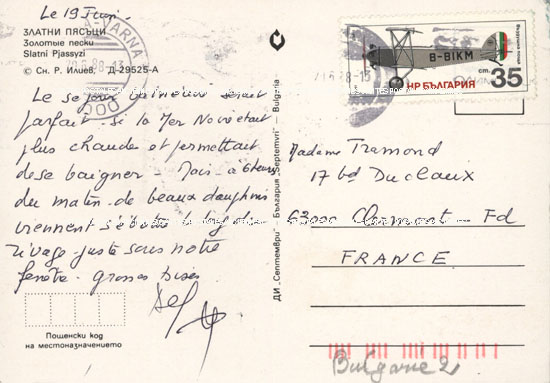 Le 19 Juin
ЗЛАТНИ ПЯСЪЦИ
Золотые пески
Slatni Pjassyzi
© Сн. Р. Илиев, Д-29525-А
VARNA
Le séjour balnéaire serait
parfait si la Mer Noire était
plus chaude et permettait
de se baigner - Mais à 6 heures
du matin de beaux dauphins
viennent s'ébattre le long du
rivage juste sous notre
fenêtre - grosses bises
Пощенски код
на местоназначението
ДИ „Септември" - България „Septemvri" - Bulgaria
B-BIKM
НР БЪЛГАРИЯ
ст. 35
Madame Tramond
17 bd Duclaux
63000 Clermont - Fd
FRANCE
Bulgarie 2